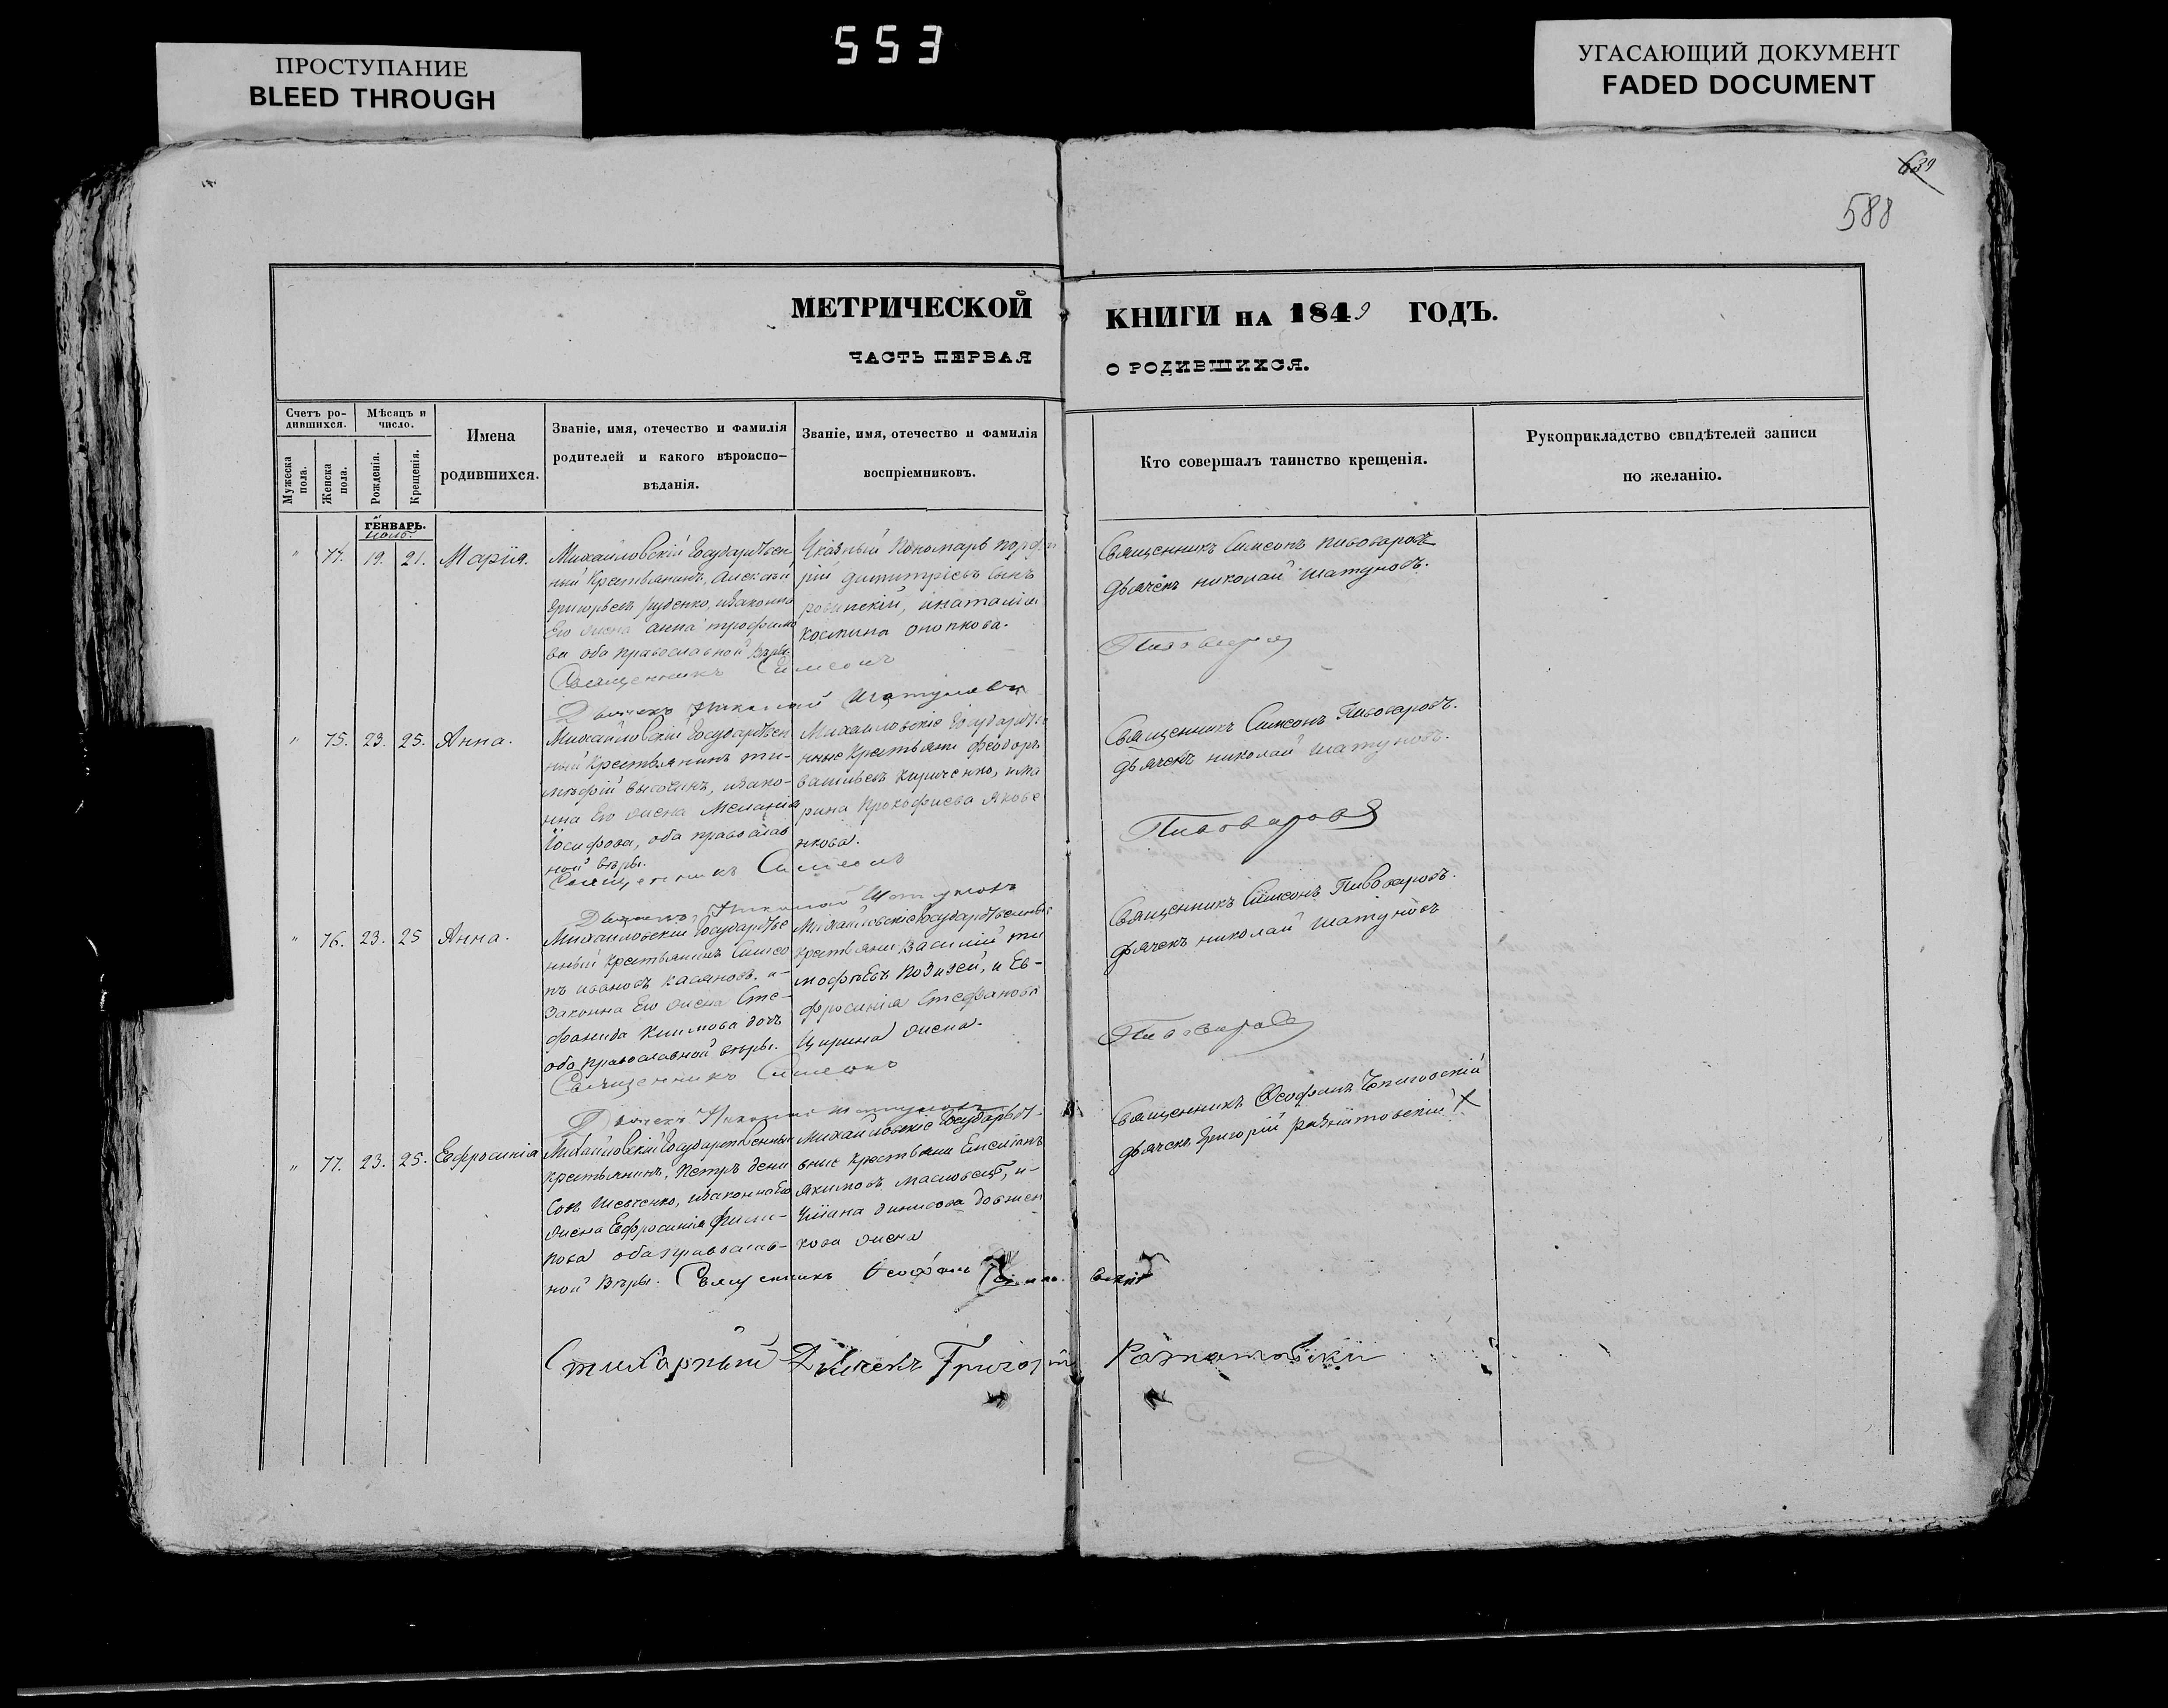 553
ПРОСТУПАНИЕ
BLEED THROUGH
УГАСАЮЩИЙ ДОКУМЕНТ
FADED DOCUMENT
639
588
МЕТРИЧЕСКОЙ КНИГИ НА 1849 ГОДЪ.
ЧАСТЬ ПЕРВАЯ О РОДИВШИХСЯ.
Счетъ ро-
дившихся.
Мужеска пола.
Женска пола.
Мѣсяцъ и
число.
Рожденія.
Крещенія.
Имена
родившихся.
Званіе, имя, отечество и фамилія
родителей и какого вѣроиспо-
вѣданія.
Званіе, имя, отечество и фамилія
воспріемниковъ.
Кто совершалъ таинство крещенія.
Рукоприкладство свидѣтелей записи
по желанію.
ГЕНВАРЬ.
" 19. 21. Марія.
Михайловскій Государствен
ный Крестьянинъ, Алексѣй
Григорьевъ Руденко, изаконна
Его жена Анна Трофимо
ва оба православной Вѣры.
Священникъ Симеонъ
Дьячекъ Николай Шатуновъ
Указный Пономарь Порфи
рій Димитріевъ Сынъ
Священникъ Симеонъ Пивоваровъ
Дьячекъ Николай Шатуновъ.
Пивоваровъ
" 75. 23. 25. Анна.
Михайловскій Государствен
ный Крестьянинъ Ти-
мофій Высочинъ, изако-
нна Его жена Меланія
Іосифова, оба православ
ной вѣры.
Священникъ Симеонъ
Дьячекъ Николай Шатуновъ
Михайловскіе Государстве
нные Крестьяне Феодоръ
Васильевъ Кириченко, има
рина ПрокофиеваЯкове
нкова.
Священникъ Симеонъ Пивоваровъ.
Дьячекъ Николай Шатуновъ.
Пивоваровъ
" 76. 23. 25 Анна.
Михайловскій Государстве
нный Крестьянинъ Симео
нъ Ивановъ Касяновъ. и-
законна Его жена Сте-
фанида Климова дочь
оба православной вѣры.
Священникъ Симеонъ
Дьячекъ Николай Шатуновъ
Михайловскіе Государственные
крестьяне Василій Ти
мофѣевъ и Ев-
фросинія Стефанова
Цирина жена.
Священникъ Симеонъ Пивоваровъ.
Дьячекъ Николай Шатуновъ
Пивоваровъ
" 77. 23. 25. Евфросинія
Михайловскій Государственный
крестьянинъ, Петръ Дени
совъ Шевченко, изаконна Его
жена Евфросинія
оба православ-
ной Вѣры. Священникъ Феофанъ
Михайловскіе Государст-
вные Крестьяне Емеліанъ
Якимовъ Масловецъ, и-
Уліана Динисова Довжен
кова жена
Священникъ Феофанъ
Дьячекъ Григорій
Стихарный Дьячекъ Григорій